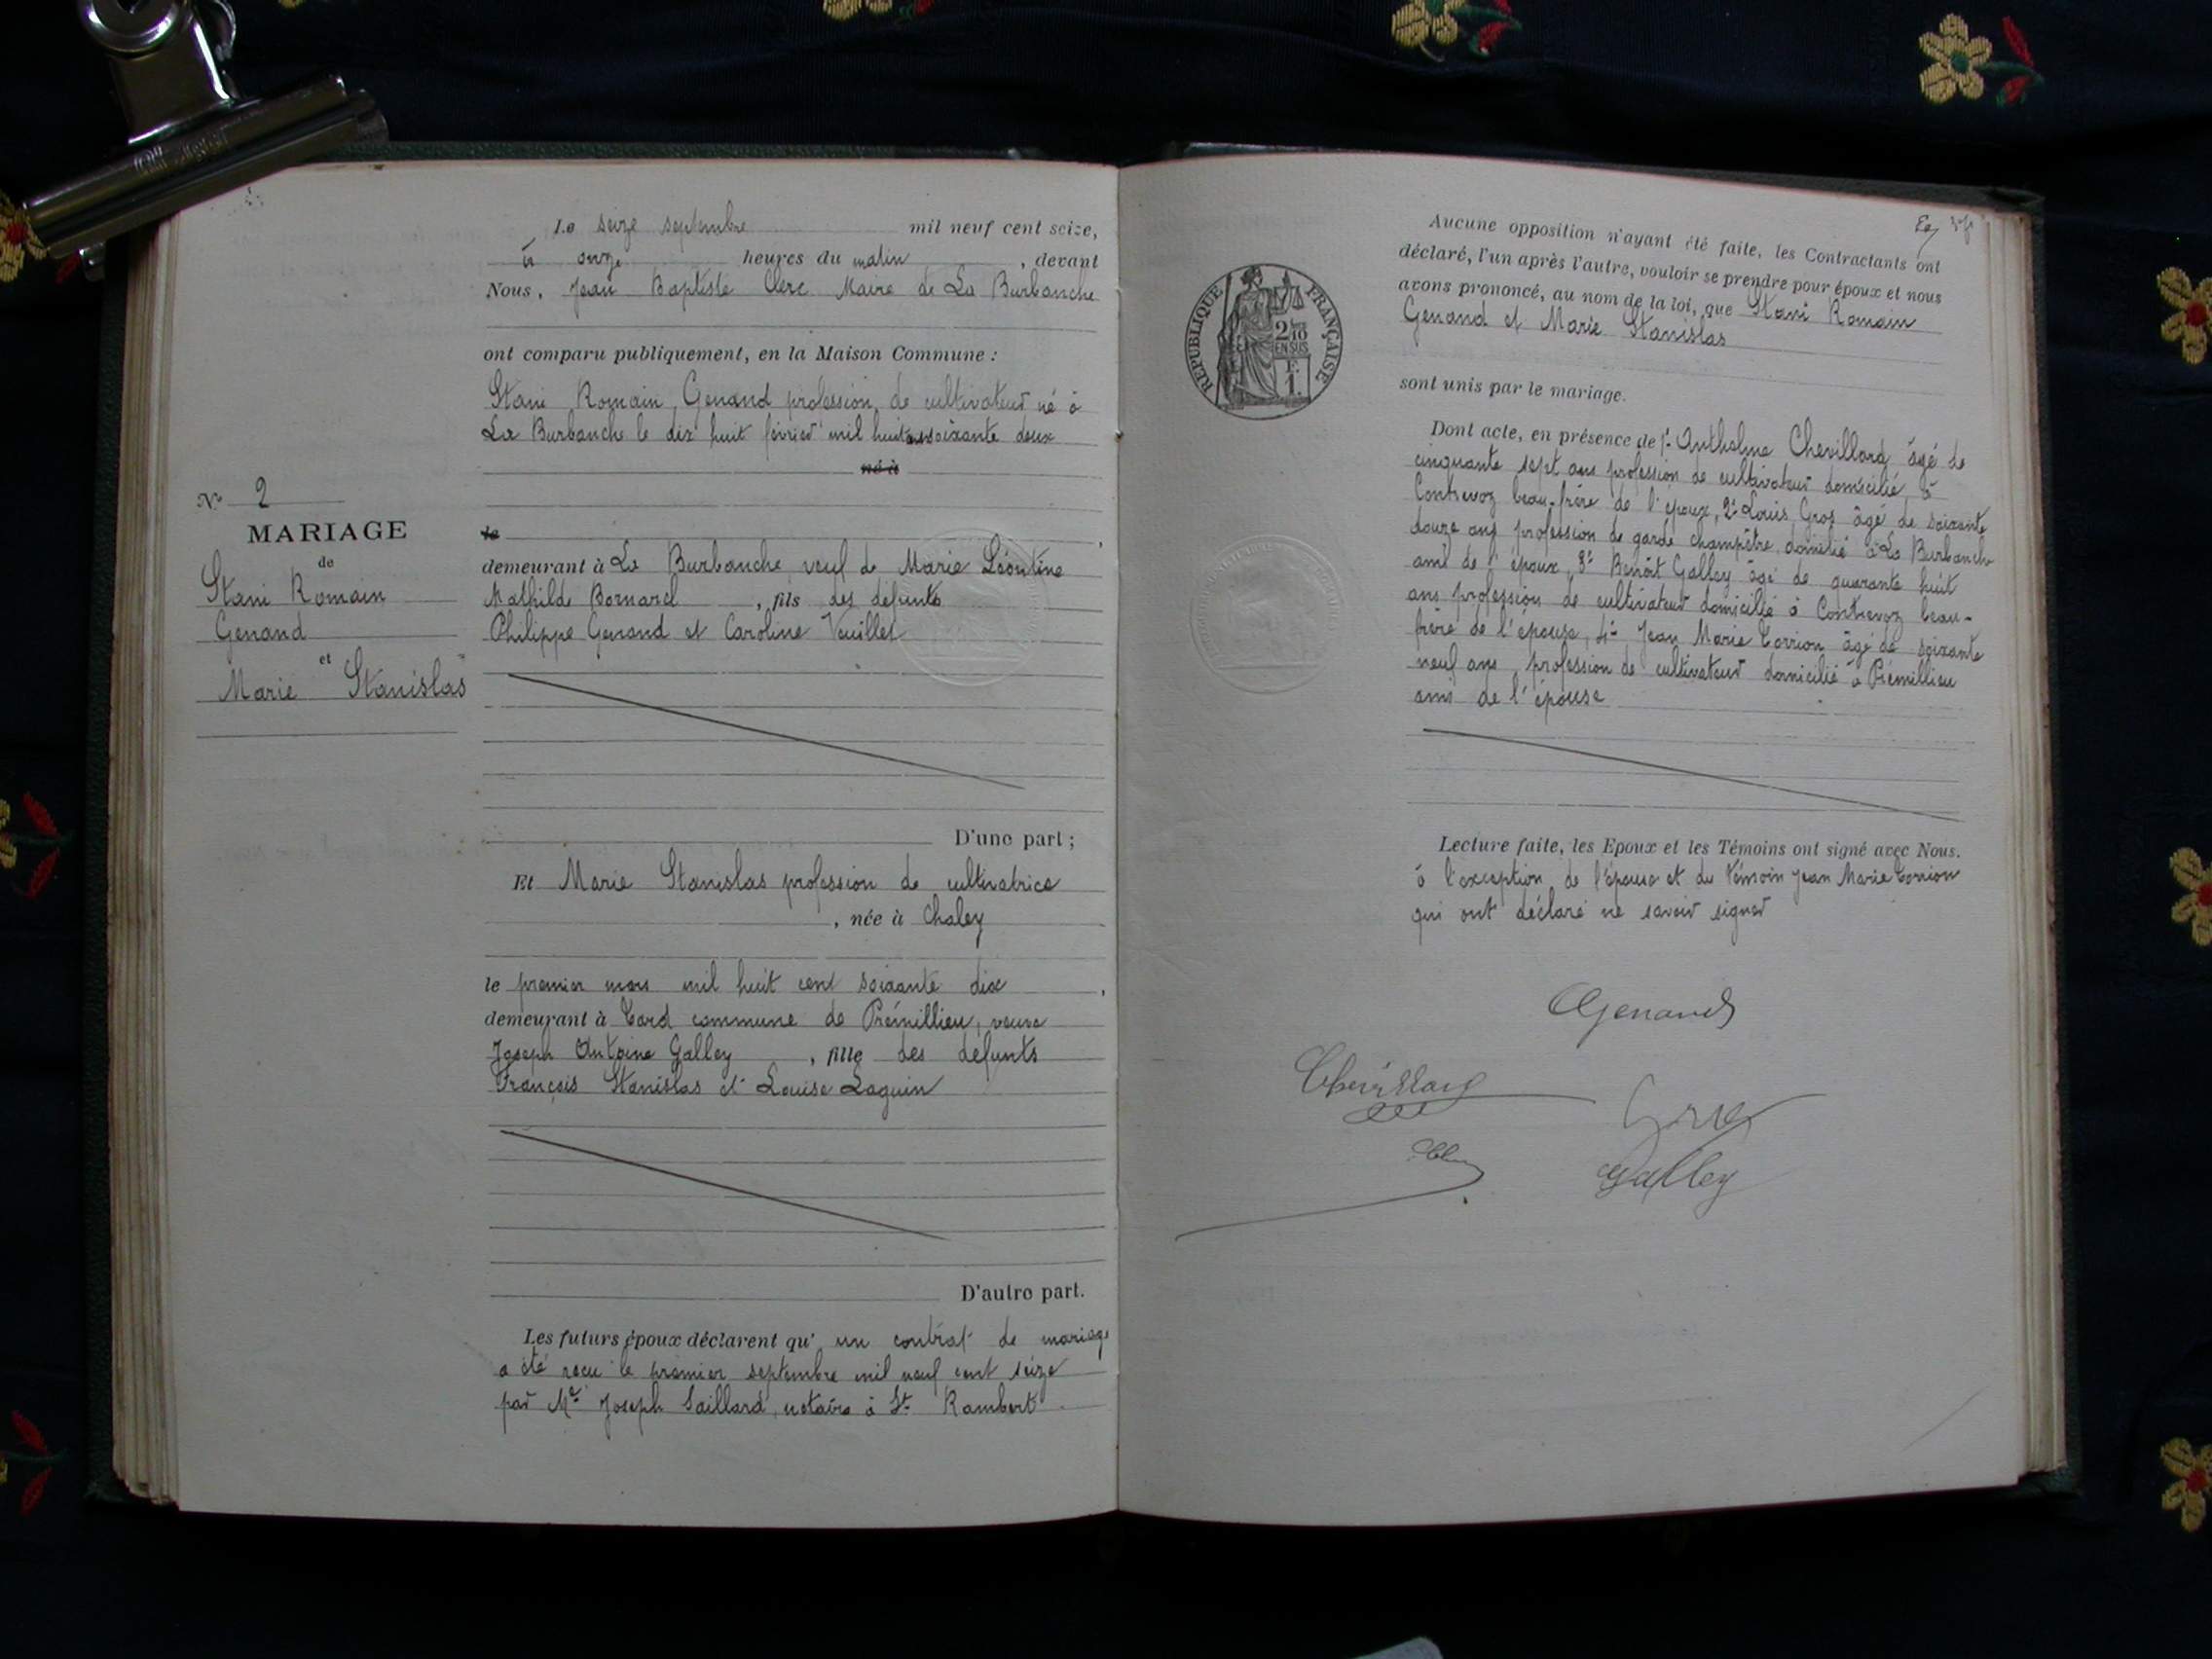 Le seize septembre mil neuf cent seize,
à onze heures du matin, devant
Nous, Jean Baptiste Clerc Maire de La Burbanche
ont comparu publiquement, en la Maison Commune :
Stani Romain Genand profession de cultivateur né à
La Burbanche le dix huit février mil huit cent soixante deux
né à
le
demeurant à La Burbanche veuf de Marie Léontine
Mathilde Bornarel, fils des défunts
Philippe Genand et Caroline Veuillet
D'une part ;
N° 2
MARIAGE
de
Stani Romain
Genand
et
Marie Stanislas
Et Marie Stanislas profession de cultivatrice
, née à Chaley
le premier mars mil huit cent soixante dix,
demeurant à Tard commune de Prémillieu, veuve
Joseph Antoine Galley, fille des défunts
François Stanislas et Louise Laguin
D'autre part.
Les futurs époux déclarent qu'un contrat de mariage
a été reçu le premier septembre mil neuf cent seize
par Me Joseph Saillard, notaire à St Rambert
REPUBLIQUE FRANÇAISE
2/10
EN SUS
F.
1.
Aucune opposition n'ayant été faite, les Contractants ont
déclaré, l'un après l'autre, vouloir se prendre pour époux et nous
avons prononcé, au nom de la loi, que Stani Romain
Genand et Marie Stanislas
sont unis par le mariage.
Dont acte, en présence de 1° Anthelme Chevillard âgé de
cinquante sept ans profession de cultivateur domicilié à
Contrevoz beau-frère de l'époux, 2° Louis Gros âgé de soixante
douze ans profession de garde champêtre domicilié à La Burbanche
ami de l'époux, 3° Benoît Galley âgé de quarante huit
ans profession de cultivateur domicilié à Contrevoz beau-
frère de l'épouse, 4° Jean Marie Torrion âgé de soixante
neuf ans profession de cultivateur domicilié à Prémillieu
ami de l'épouse
Lecture faite, les Epoux et les Témoins ont signé avec Nous.
à l'exception de l'épouse et du témoin Jean Marie Torrion
qui ont déclaré ne savoir signer
Genand
Chevillard
Gros
Galley